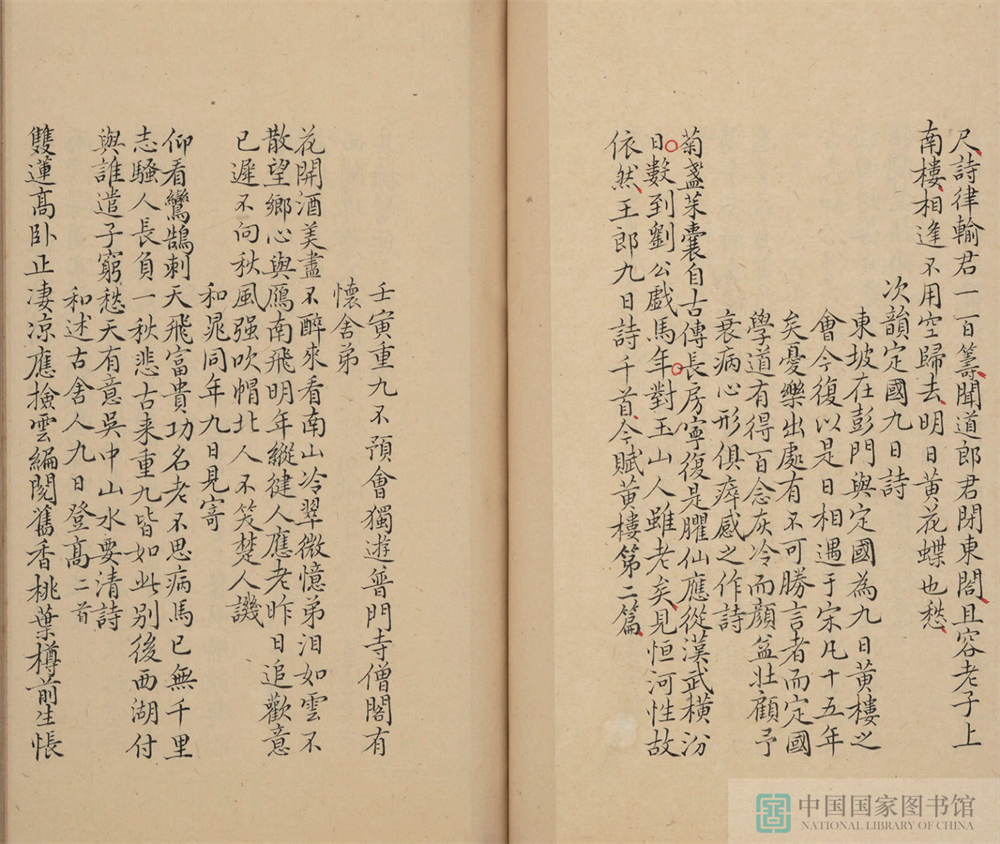 尺詩律輸君一百籌聞道郎君閉東閤且容老子上
南樓相逢不用空歸去明日黃花蝶也愁
次韻定國九日詩
東坡在彭門與定國為九日黃樓之
會今復以是日相遇于宋凡十五年
矣憂樂出處有不可勝言者而定國
學道有得百念灰冷而顏益壯顧予
衰病心形俱瘁感之作詩
菊盞茱囊自古傳長房寧復是臞仙應從漢武橫汾
日數到劉公戲馬年對玉山人雖老矣見恒河性故
依然王郎九日詩千首今賦黃樓第二篇
壬寅重九不預會獨遊普門寺僧閣有
懷舍弟
花開酒美盡不醉來看南山冷翠微憶弟淚如雲不
散望鄉心與鴈南飛明年縱健人應老昨日追歡意
已遲不向秋風强吹帽北人不笑楚人譏
和晁同年九日見寄
仰看鸞鵠刺天飛富貴功名老不思病馬已無千里
志騷人長負一秋悲古来重九皆如此别後西湖付
與誰遣子窮愁天有意吳中山水要清詩
和述古舍人九日登高二首
雙蓮高卧止凄凉應撿雲編閱舊香桃葉樽前生悵
中国国家图书馆
NATIONAL LIBRARY OF CHINA